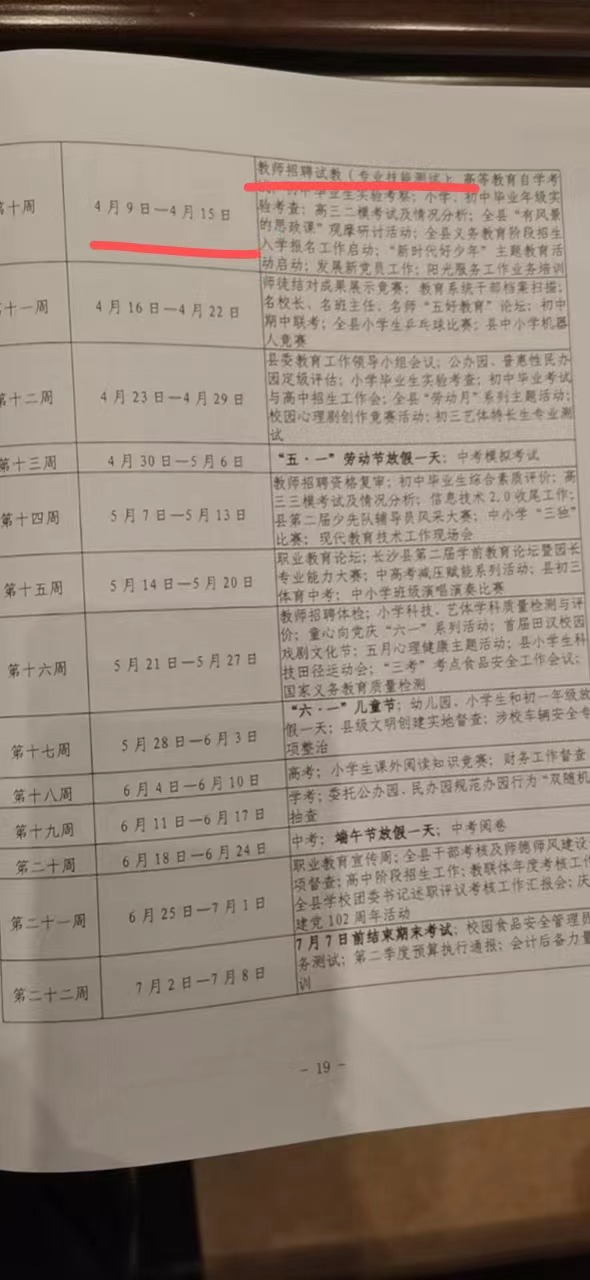 第十周
4月9日—4月15日
教师招聘试教（专业技能测试）；高等教育自学考
初中毕业生实验考察；小学、初中毕业年级实
验考查；高三二模考试及情况分析；全县“有风景
的思政课”观摩研讨活动；全县义务教育阶段招生
入学报名工作启动；“新时代好少年”主题教育活
动启动；发展新党员工作；阳光服务工作业务培训
十一周
4月16日—4月22日
师徒结对成果展示竞赛；教育系统干部档案扫描；
名校长、名班主任、名师“五好教育”论坛；初中
期中联考；全县小学生乒乓球比赛；县中小学机器
人竞赛
十二周
4月23日—4月29日
县委教育工作领导小组会议；公办园、普惠性民办
园定级评估；小学毕业生实验考查；初中毕业考试
与高中招生工作会；全县“劳动月”系列主题活动；
校园心理剧创作竞赛活动；初三艺体特长生专业测
试
第十三周
4月30日—5月6日
“五·一”劳动节放假一天；中考模拟考试
第十四周
5月7日—5月13日
教师招聘资格复审；初中毕业生综合素质评价；高
三三模考试及情况分析；信息技术2.0收尾工作；
县第二届少先队辅导员风采大赛；中小学“三独”
比赛；现代教育技术工作现场会
第十五周
5月14日—5月20日
职业教育论坛；长沙县第二届学前教育论坛暨园长
专业能力大赛；中高考减压赋能系列活动；县初三
体育中考；中小学班级演唱演奏比赛
第十六周
5月21日—5月27日
教师招聘体检；小学科技、艺体学科质量检测与评
价；童心向党庆“六一”系列活动；首届田汉校园
戏剧文化节；五月心理健康主题活动；县小学生科
技田径运动会；“三考”考点食品安全工作会议；
国家义务教育质量检测
第十七周
5月28日—6月3日
“六·一”儿童节；幼儿园、小学生和初一年级放
假一天；县级文明创建实地督查；涉校车辆安全专
项整治
第十八周
6月4日—6月10日
高考；小学生课外阅读知识竞赛；财务工作督查
第十九周
6月11日—6月17日
学考；委托公办园、民办园规范办园行为“双随机
抽查
第二十周
6月18日—6月24日
中考；端午节放假一天；中考阅卷
第二十一周
6月25日—7月1日
职业教育宣传周；全县干部考核及师德师风建设
项督查；高中阶段招生工作；教联体年度考核工作
全县学校团委书记述职评议考核工作汇报会；庆
建党102周年活动
第二十二周
7月2日—7月8日
7月7日前结束期末考试；校园食品安全管理员
务测试；第二季度预算执行通报；会计后备力量
训
- 19 -